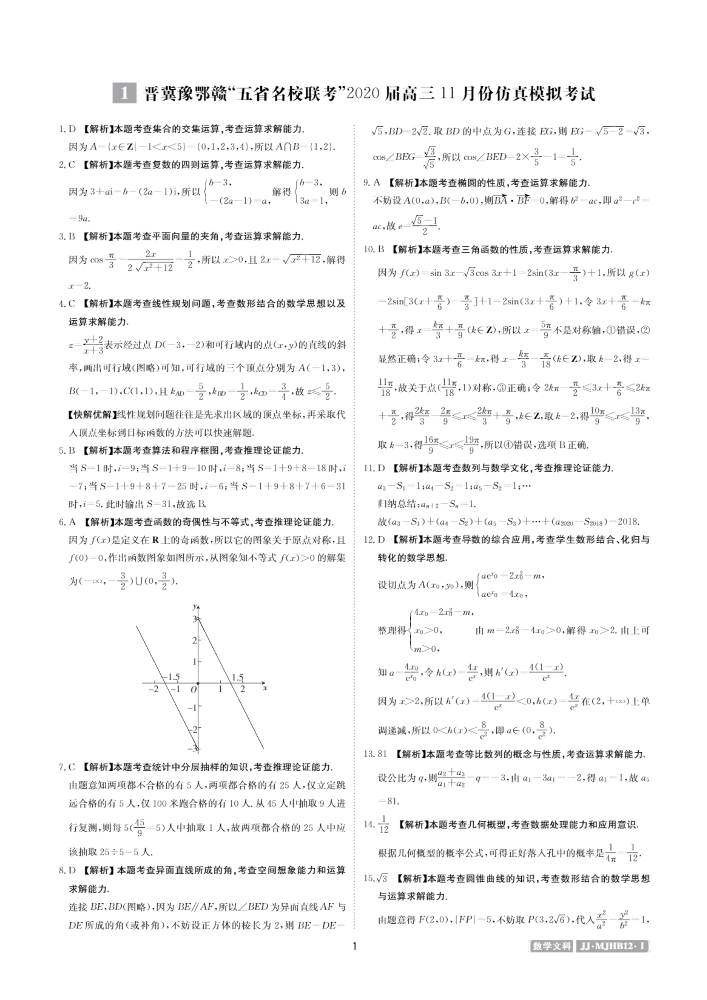 1 晋冀豫鄂赣“五省名校联考”2020 届高三 11 月份仿真模拟考试
1. D 【解析】本题考查集合的交集运算,考查运算求解能力.
因为 A={x∈Z|-1<x<5}={0,1,2,3,4},所以 A∩B={1,2}.
2. C 【解析】本题考查复数的四则运算,考查运算求解能力.
因为 3+ai=b-(2a-1)i,所以{b=3, -(2a-1)=a, 解得{b=3, 3a=1, 则 b
=9a.
3. B 【解析】本题考查平面向量的夹角,考查运算求解能力.
因为 cos π/3=2x/(2√(x²+12))=1/2,所以 x>0,且 2x=√(x²+12),解得
x=2.
4. C 【解析】本题考查线性规划问题,考查数形结合的数学思想以及
运算求解能力.
z=(y+2)/(x+3)表示经过点 D(-3,-2)和可行域内的点(x,y)的直线的斜
率,画出可行域(图略)可知,可行域的三个顶点分别为 A(-1,3),
B(-1,-1),C(1,1),且 kAD=5/2,kBD=1/2,kCD=3/4,故 z≤5/2.
【快解优解】线性规划问题往往是先求出区域的顶点坐标,再采取代
入顶点坐标到目标函数的方法可以快速解题.
5. B 【解析】本题考查算法和程序框图,考查推理论证能力.
当 S=1 时,i=9;当 S=1+9=10 时,i=8;当 S=1+9+8=18 时,i
=7;当 S=1+9+8+7=25 时,i=6;当 S=1+9+8+7+6=31
时,i=5. 此时输出 S=31,故选 B.
6. A 【解析】本题考查函数的奇偶性与不等式,考查推理论证能力.
因为 f(x)是定义在 R 上的奇函数,所以它的图象关于原点对称,且
f(0)=0,作出函数图象如图所示,从图象知不等式 f(x)>0 的解集
为(-∞,-3/2)∪(0,3/2).
y
3
2
1
-1.5 1.5
-2 -1 O 1 2 x
-1
-2
-3
7. C 【解析】本题考查统计中分层抽样的知识,考查推理论证能力.
由题意知两项都不合格的有 5 人,两项都合格的有 25 人,仅立定跳
远合格的有 5 人,仅 100 米跑合格的有 10 人. 从 45 人中抽取 9 人进
行复测,则每 5(45/9=5)人中抽取 1 人,故两项都合格的 25 人中应
该抽取 25÷5=5 人.
8. D 【解析】本题考查异面直线所成的角,考查空间想象能力和运算
求解能力.
连接 BE,BD(图略),因为 BE∥AF,所以∠BED 为异面直线 AF 与
DE 所成的角(或补角),不妨设正方体的棱长为 2,则 BE=DE=
√5,BD=2√2. 取 BD 的中点为 G,连接 EG,则 EG=√(5-2)=√3,
cos∠BEG=√3/√5,所以 cos∠BED=2×3/5-1=1/5.
9. A 【解析】本题考查椭圆的性质,考查运算求解能力.
不妨设 A(0,a),B(-b,0),则BA·BF=0,解得 b²=ac,即 a²-c²=
ac,故 e=(√5-1)/2.
10. B 【解析】本题考查三角函数的性质,考查运算求解能力.
因为 f(x)=sin 3x-√3cos 3x+1=2sin(3x-π/3)+1,所以 g(x)
=2sin[3(x+π/6)-π/3]+1=2sin(3x+π/6)+1,令 3x+π/6=kπ
+π/2,得 x=kπ/3+π/9(k∈Z),所以 x=5π/9不是对称轴,①错误,②
显然正确;令 3x+π/6=kπ,得 x=kπ/3-π/18(k∈Z),取 k=2,得 x=
11π/18,故关于点(11π/18,1)对称,③正确;令 2kπ-π/2≤3x+π/6≤2kπ
+π/2,得2kπ/3-2π/9≤x≤2kπ/3+π/9,k∈Z,取 k=2,得10π/9≤x≤13π/9,
取 k=3,得16π/9≤x≤19π/9,所以④错误,选项 B 正确.
11. D 【解析】本题考查数列与数学文化,考查推理论证能力.
a₃-S₁=1;a₄-S₂=1;a₅-S₃=1;…
归纳总结:aₙ₊₂-Sₙ=1.
故(a₃-S₁)+(a₄-S₂)+(a₅-S₃)+…+(a₂₀₂₀-S₂₀₁₈)=2018.
12. D 【解析】本题考查导数的综合应用,考查学生数形结合、化归与
转化的数学思想.
设切点为 A(x₀,y₀),则{ae^x₀=2x₀²-m, ae^x₀=4x₀,
整理得{4x₀=2x₀²-m, x₀>0, m>0, 由 m=2x₀²-4x₀>0,解得 x₀>2. 由上可
知 a=4x₀/e^x₀,令 h(x)=4x/e^x,则 h′(x)=4(1-x)/e^x.
因为 x>2,所以 h′(x)=4(1-x)/e^x<0,h(x)=4x/e^x 在(2,+∞)上单
调递减,所以 0<h(x)<8/e²,即 a∈(0,8/e²).
13. 81 【解析】本题考查等比数列的概念与性质,考查运算求解能力.
设公比为 q,则(a₂+a₃)/(a₁+a₂)=q=-3,由 a₁-3a₁=-2,得 a₁=1,故 a₅
=81.
14. 1/12 【解析】本题考查几何概型,考查数据处理能力和应用意识.
根据几何概型的概率公式,可得正好落入孔中的概率是1/4π=1/12.
15. √3 【解析】本题考查圆锥曲线的知识,考查数形结合的数学思想
与运算求解能力.
由题意得 F(2,0),|FP|=5,不妨取 P(3,2√6),代入x²/a²-y²/b²=1,
1
数学文科 JJ·MJHB12·1